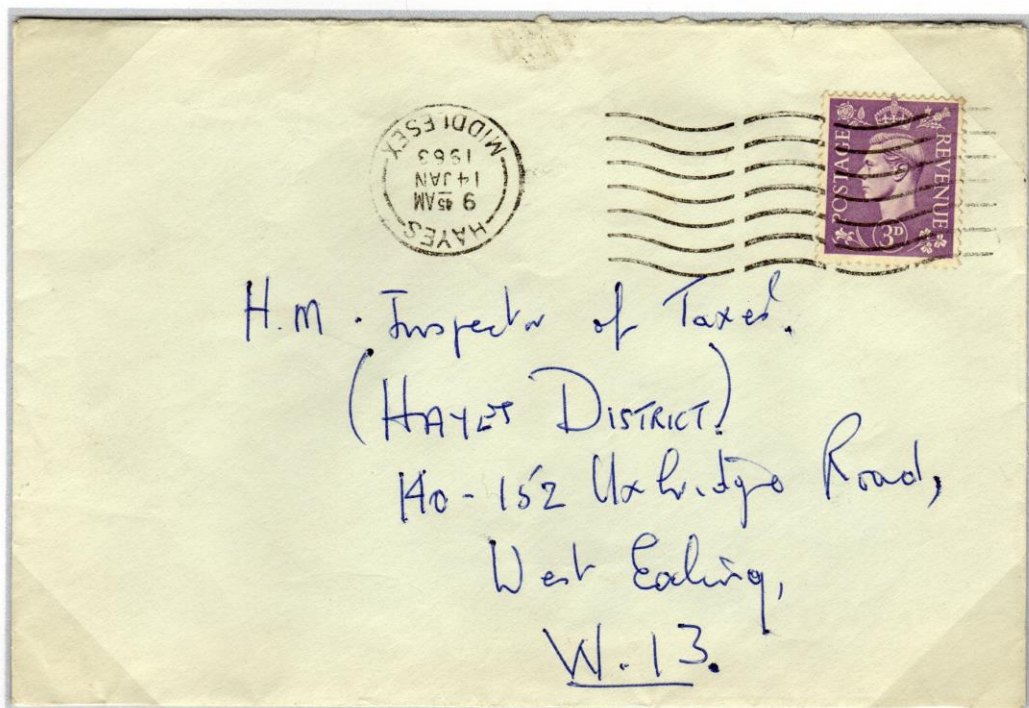 HAYES
9 45 AM
14 JAN
1963
MIDDLESEX
POSTAGE
REVENUE
3D
H.M. Inspector of Taxes.
(HAYES DISTRICT)
140-152 Uxbridge Road,
West Ealing,
W.13.